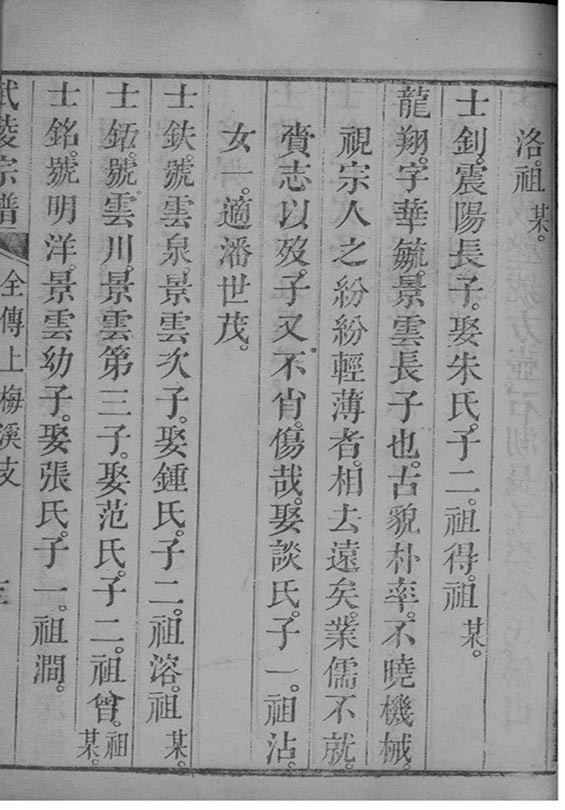 洛。祖某。
士釗。震陽長子。娶朱氏。子二。祖得。祖某。
龍翔。字華毓。景雲長子也。古貌朴率。不曉機械。
視宗人之紛紛輕薄者。相去遠矣。業儒不就。
賫志以歿。子又不肖。傷哉。娶談氏。子一。祖沾。
女一。適潘世茂。
士鈇。號雲泉。景雲次子。娶鍾氏。子二。祖溶。祖某。
士鉐。號雲川。景雲第三子。娶范氏。子二。祖曾。祖某。
士銘。號明洋。景雲幼子。娶張氏。子一。祖澗。
武陵宗譜 全傳上梅溪支